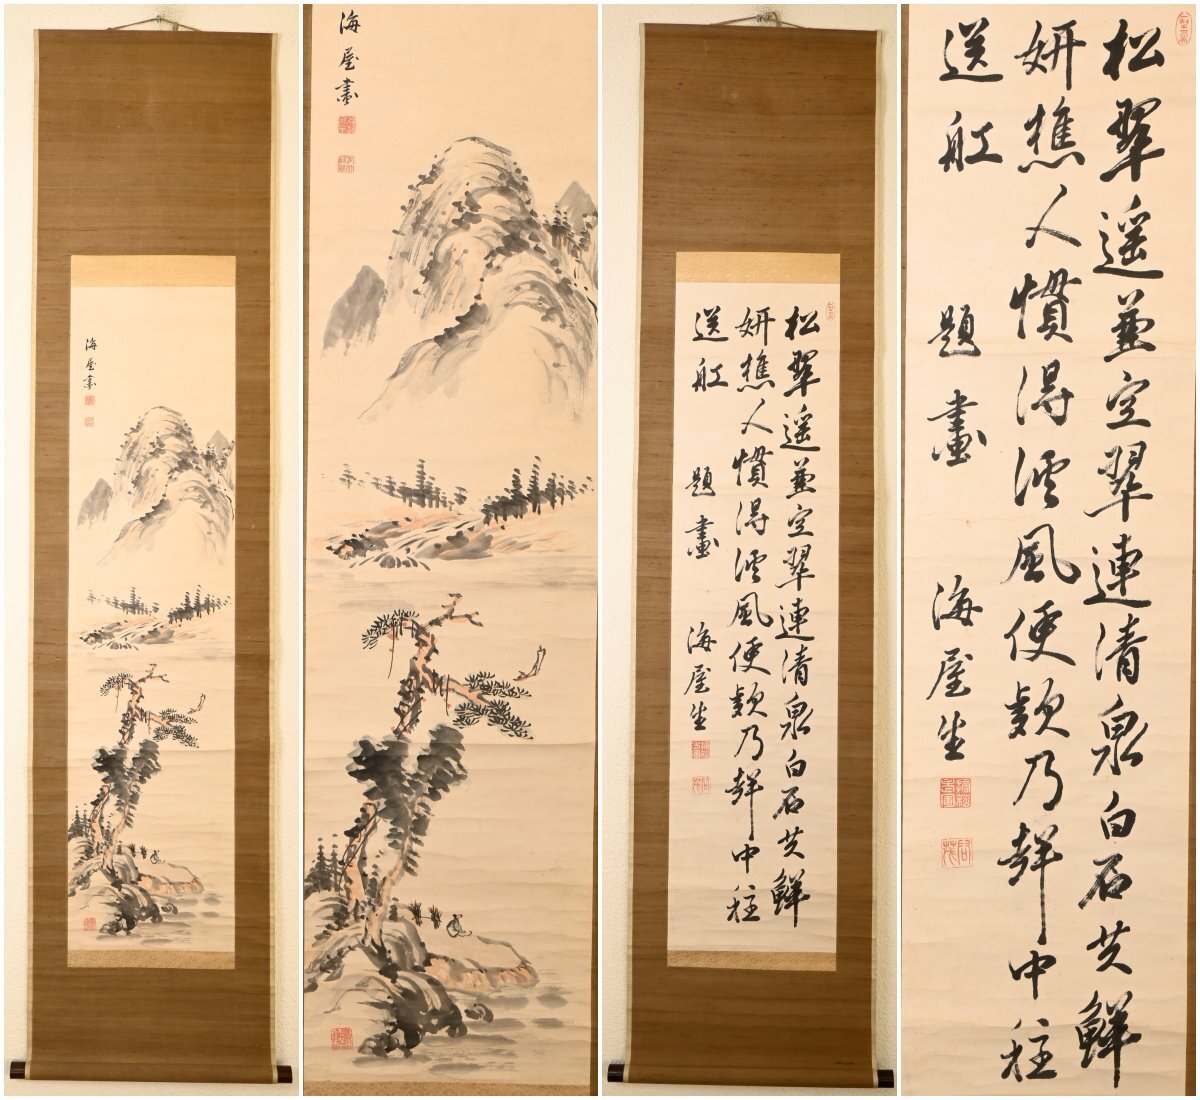 海屋畫
海屋畫
松翠遥兼空翠連清泉白石共鮮
妍樵人慣得溪風便欸乃聲中往
送舡 題畫 海屋生
松翠遥兼空翠連清泉白石共鮮
妍樵人慣得溪風便欸乃聲中往
送舡 題畫 海屋生